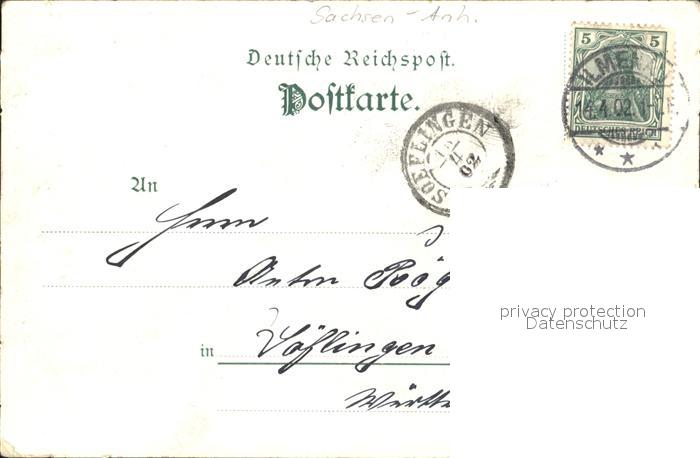 Sachsen-Anh.
Deutsche Reichspost.
Postkarte.
5 5
ILMEN
14.4.02.
DEUTSCHES REICH
SOEFLINGEN
02
An
Herrn
Anton
in Söflingen
Württe
privacy protection
Datenschutz